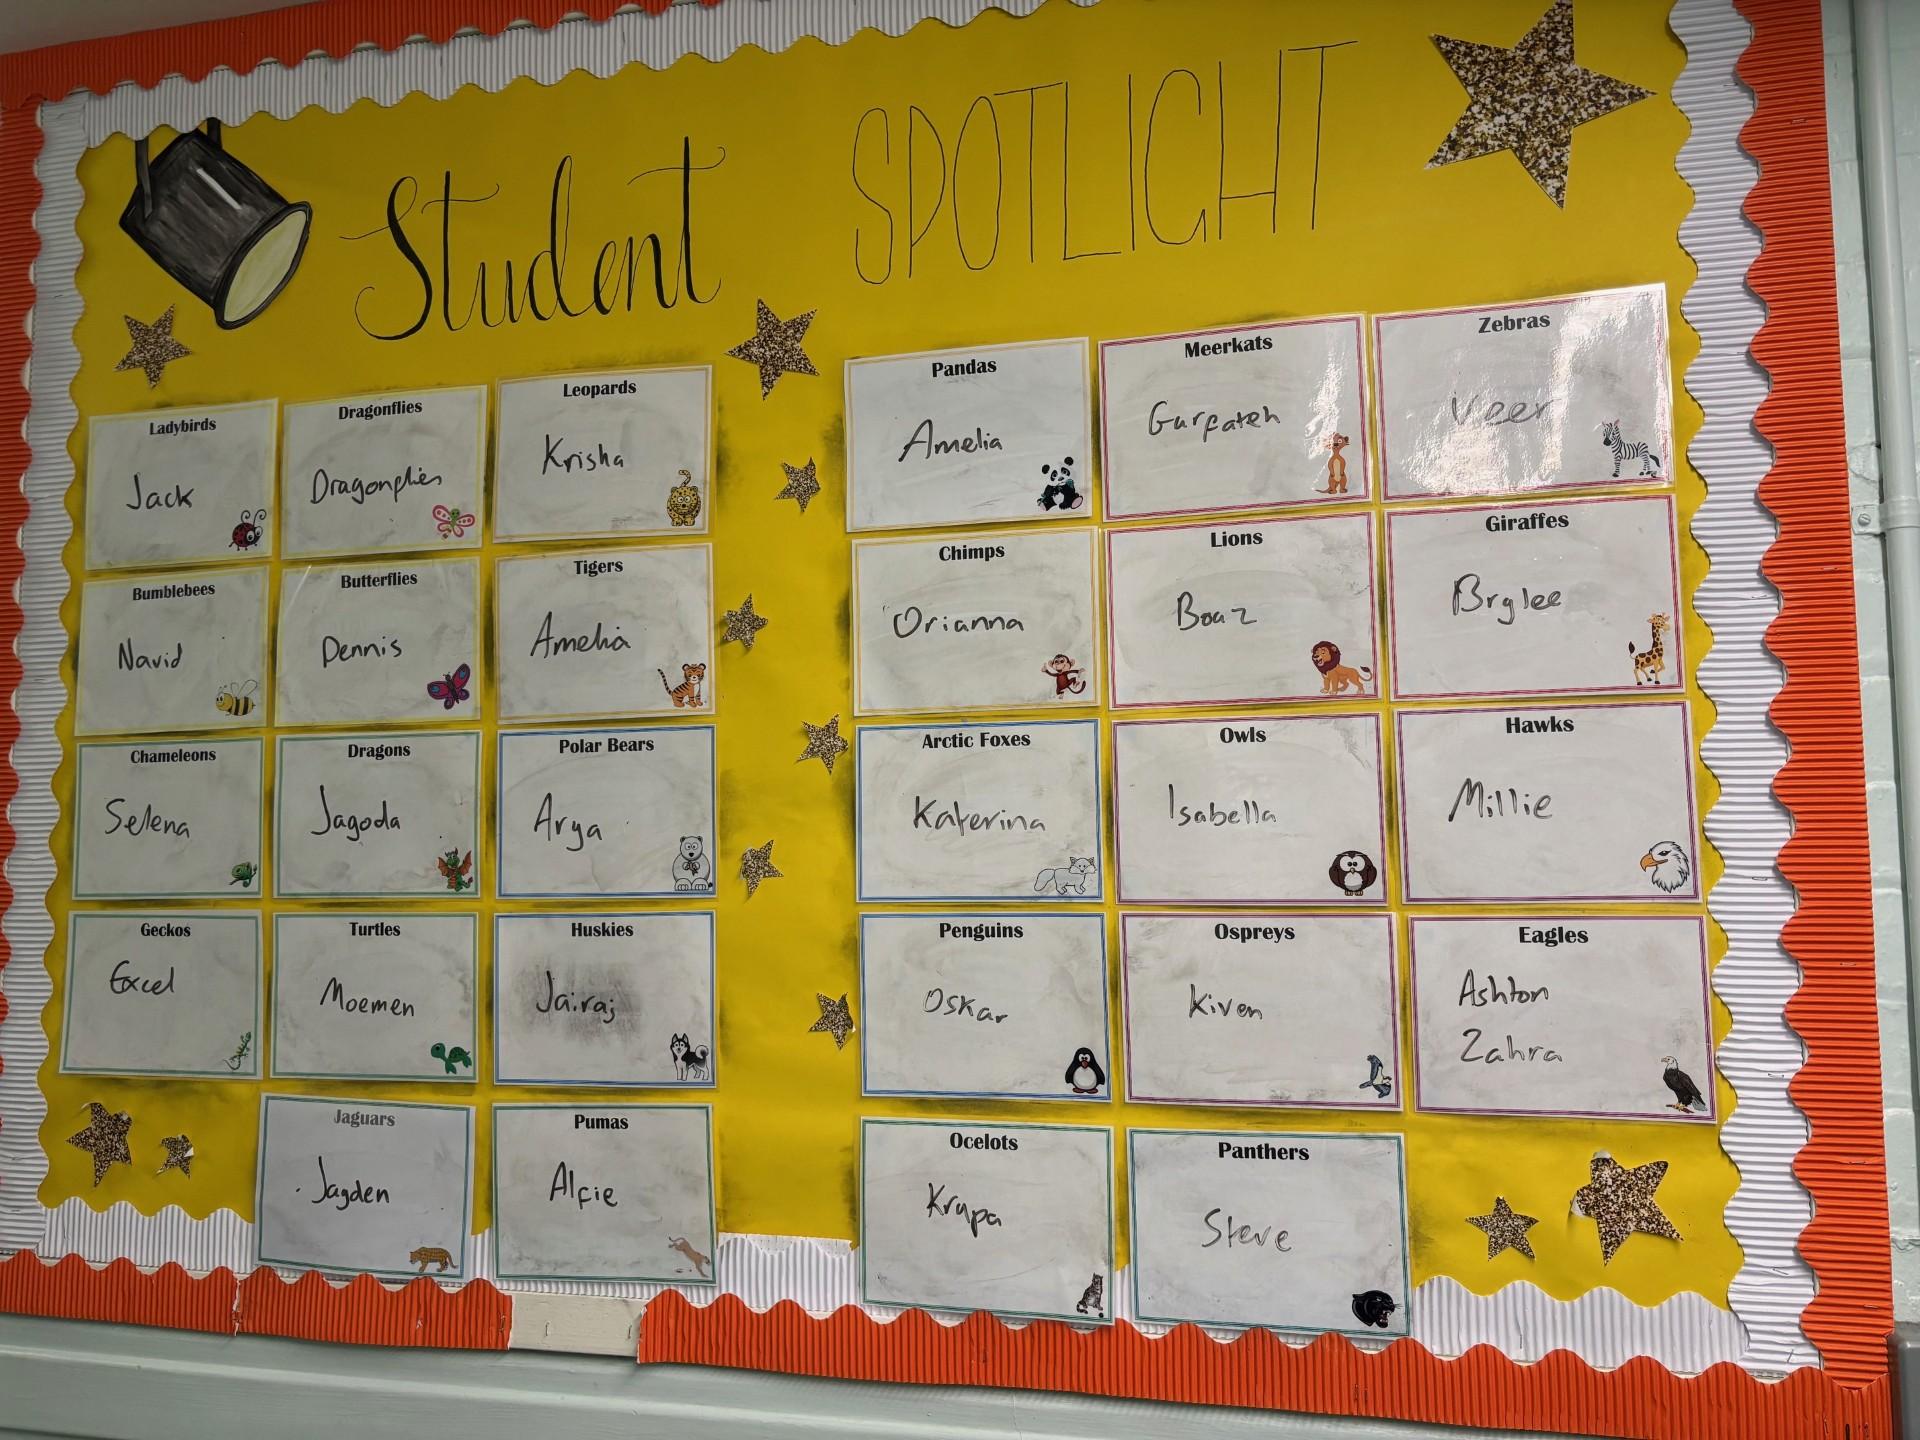 Student SPOTLIGHT
Ladybirds
Jack
Dragonflies
Dragonflies
Leopards
Krisha
Bumblebees
Navid
Butterflies
Dennis
Tigers
Amelia
Chameleons
Selena
Dragons
Jagoda
Polar Bears
Arya
Geckos
Excel
Turtles
Moemen
Huskies
Jairaj
Jaguars
Jagden
Pumas
Alfie
Pandas
Amelia
Meerkats
Gurfateh
Zebras
Veer
Chimps
Orianna
Lions
Boaz
Giraffes
Brylee
Arctic Foxes
Katerina
Owls
Isabella
Hawks
Millie
Penguins
Oskar
Ospreys
Kiven
Eagles
Ashton
Zahra
Ocelots
Krupa
Panthers
Steve